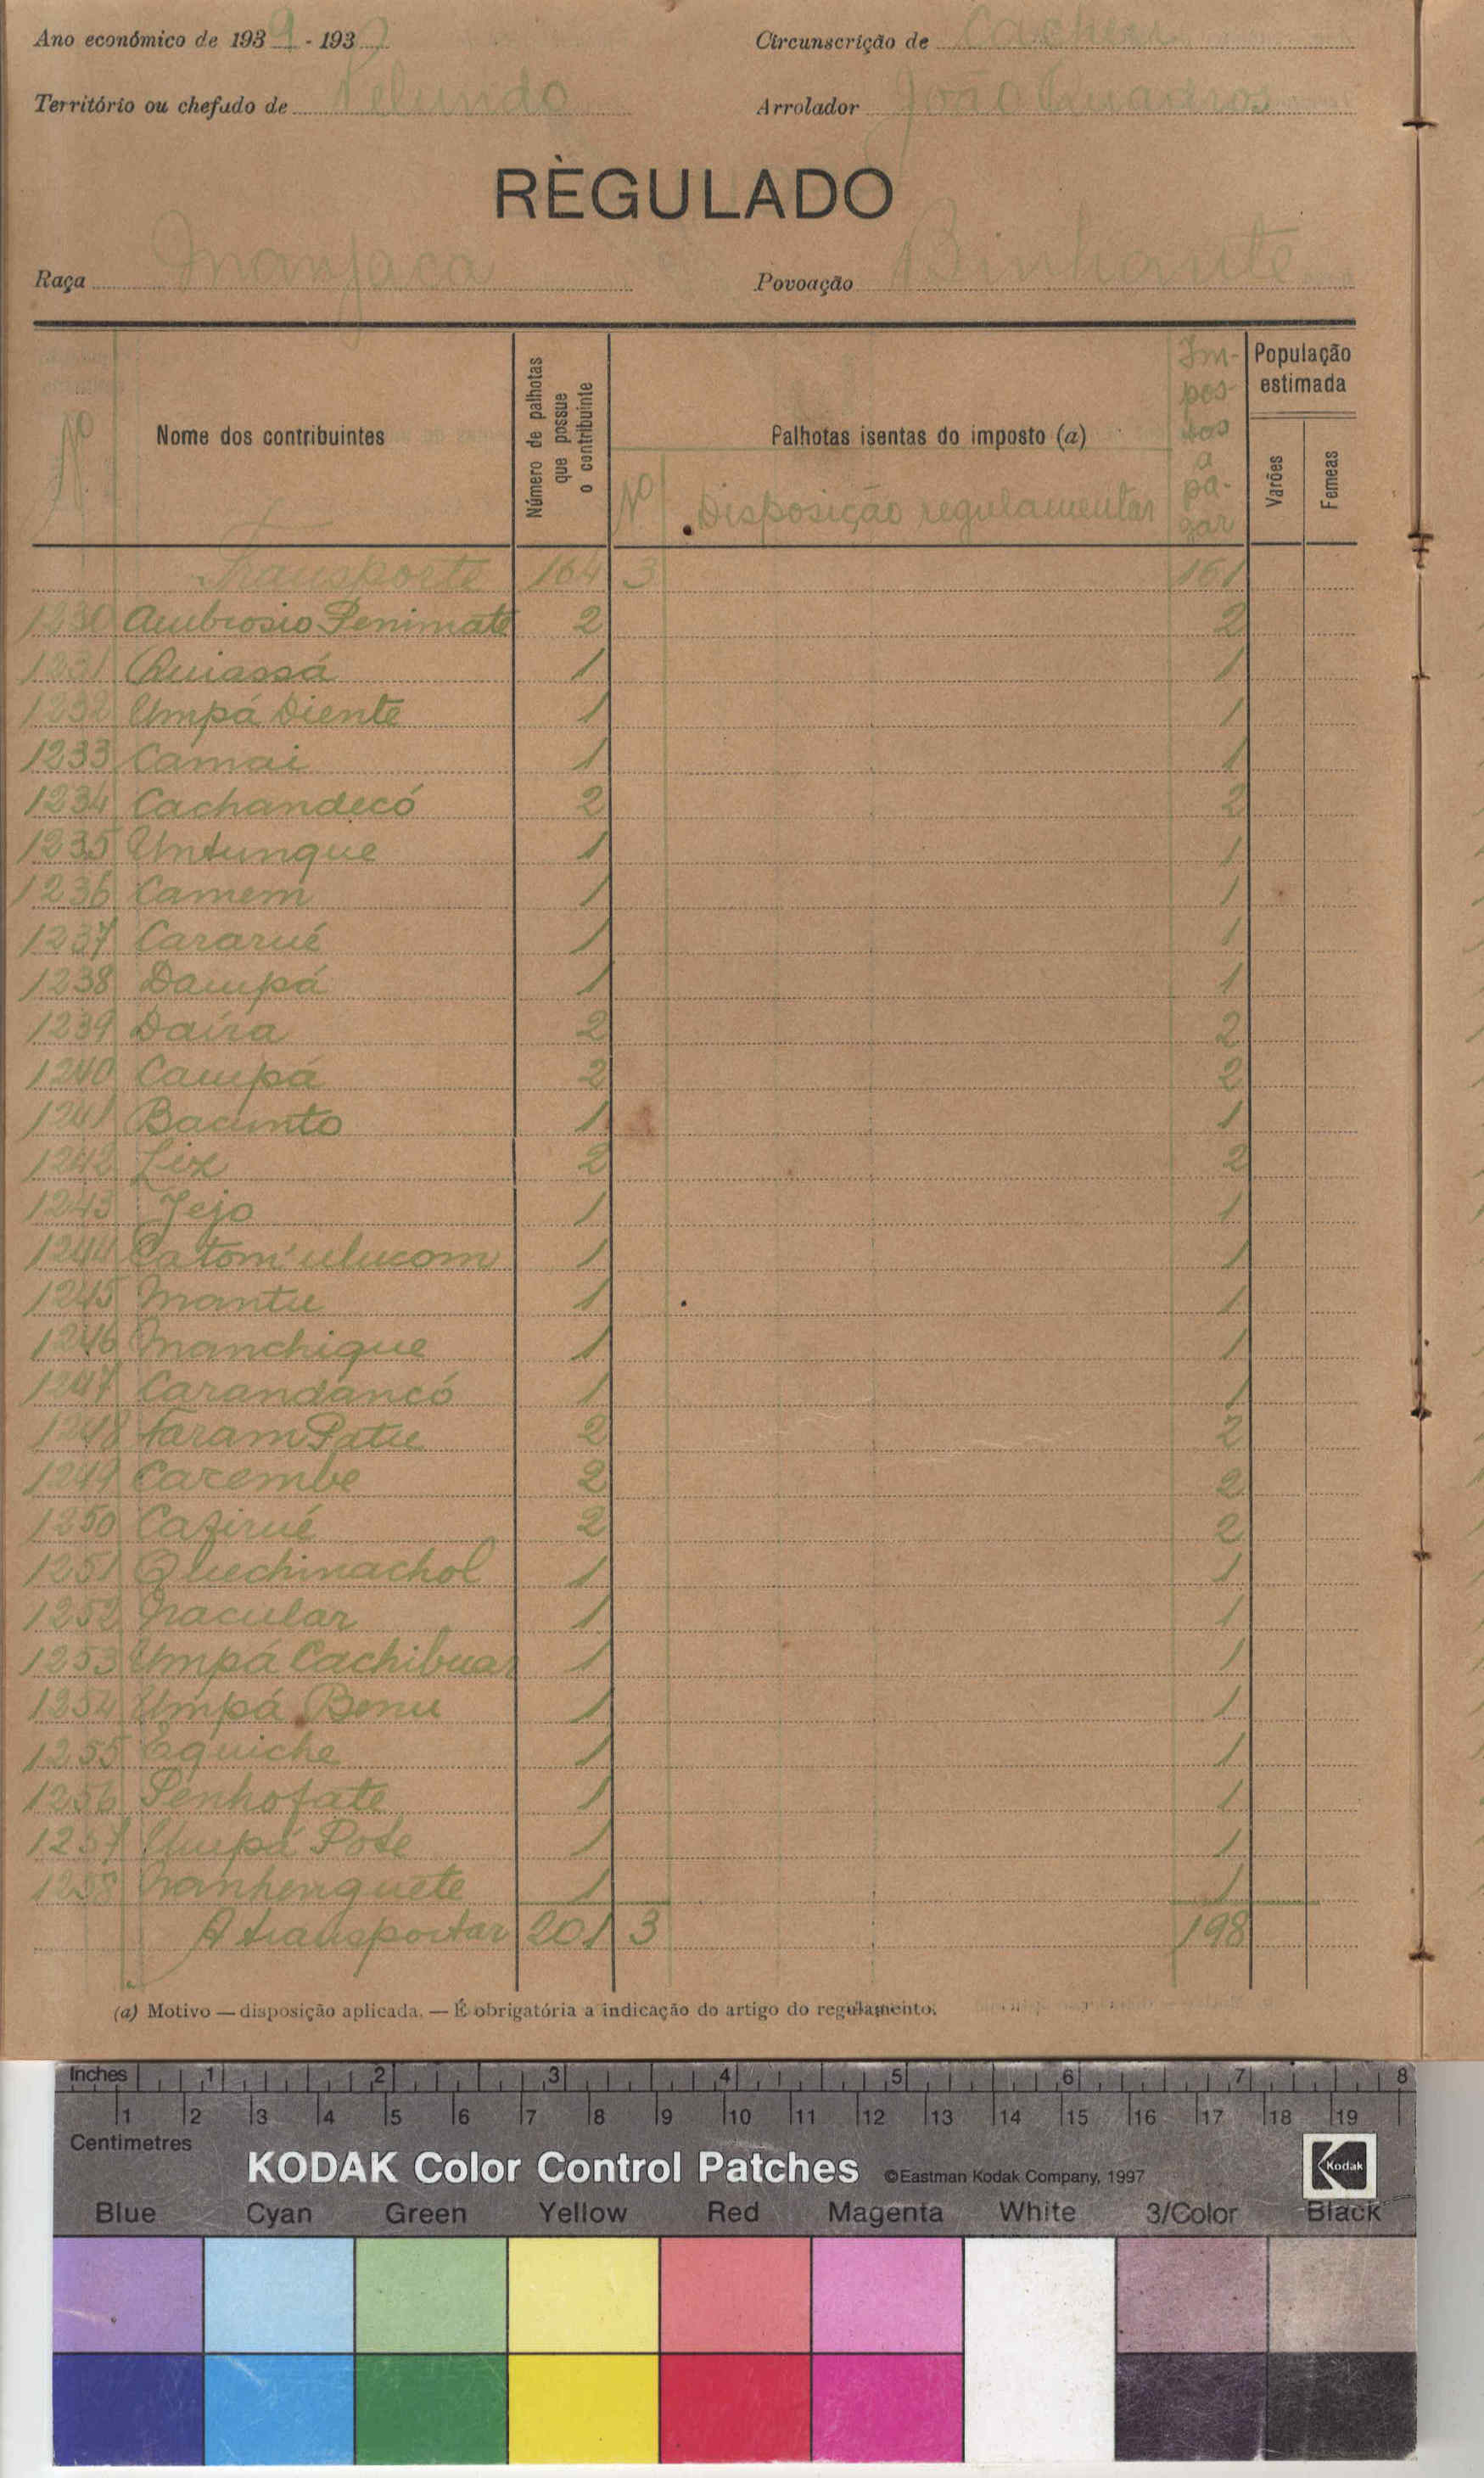 Ano económico de 1939 - 193
Circunscrição de Cacheu
Território ou chefado de Pelundo
Arrolador João Quadros
RÈGULADO
Raça Manjaca
Povoação Binhante
Nº
Nome dos contribuintes
Número de palhotas que possue o contribuinte
Palhotas isentas do imposto (a)
Nº
Disposição regulamentar
Impostos a pagar
População estimada
Varões
Femeas
Transporte 164 3 161
1230 Ambrosio Penimate 2 2
1231 Quiassá 1 1
1232 Umpá Diente 1 1
1233 Camai 1 1
1234 Cachandecó 2 2
1235 Untunque 1 1
1236 Camem 1 1
1237 Cararué 1 1
1238 Dampá 1 1
1239 Daira 2 2
1240 Campá 2 2
1241 Bacinto 1 1
1242 Liz 2 2
1243 Jejo 1 1
1244 Catom'ulucom 1 1
1245 Mantu 1 1
1246 Manchique 1 1
1247 Carandancó 1 1
1248 Faram Patu 2 2
1249 Carembe 2 2
1250 Cafirué 2 2
1251 Quechinachol 1 1
1252 Nacular 1 1
1253 Umpá Cachibuar 1 1
1254 Umpá Bonu 1 1
1255 Equiche 1 1
1256 Penhofate 1 1
1257 Umpá Pote 1 1
1258 Nanhenguete 1 1
A transportar 201 3 198
(a) Motivo — disposição aplicada. — É obrigatória a indicação do artigo do regulamento.
Inches 1 2 3 4 5 6 7 8
1 2 3 4 5 6 7 8 9 10 11 12 13 14 15 16 17 18 19
Centimetres
KODAK Color Control Patches ©Eastman Kodak Company, 1997 Kodak
Blue Cyan Green Yellow Red Magenta White 3/Color Black